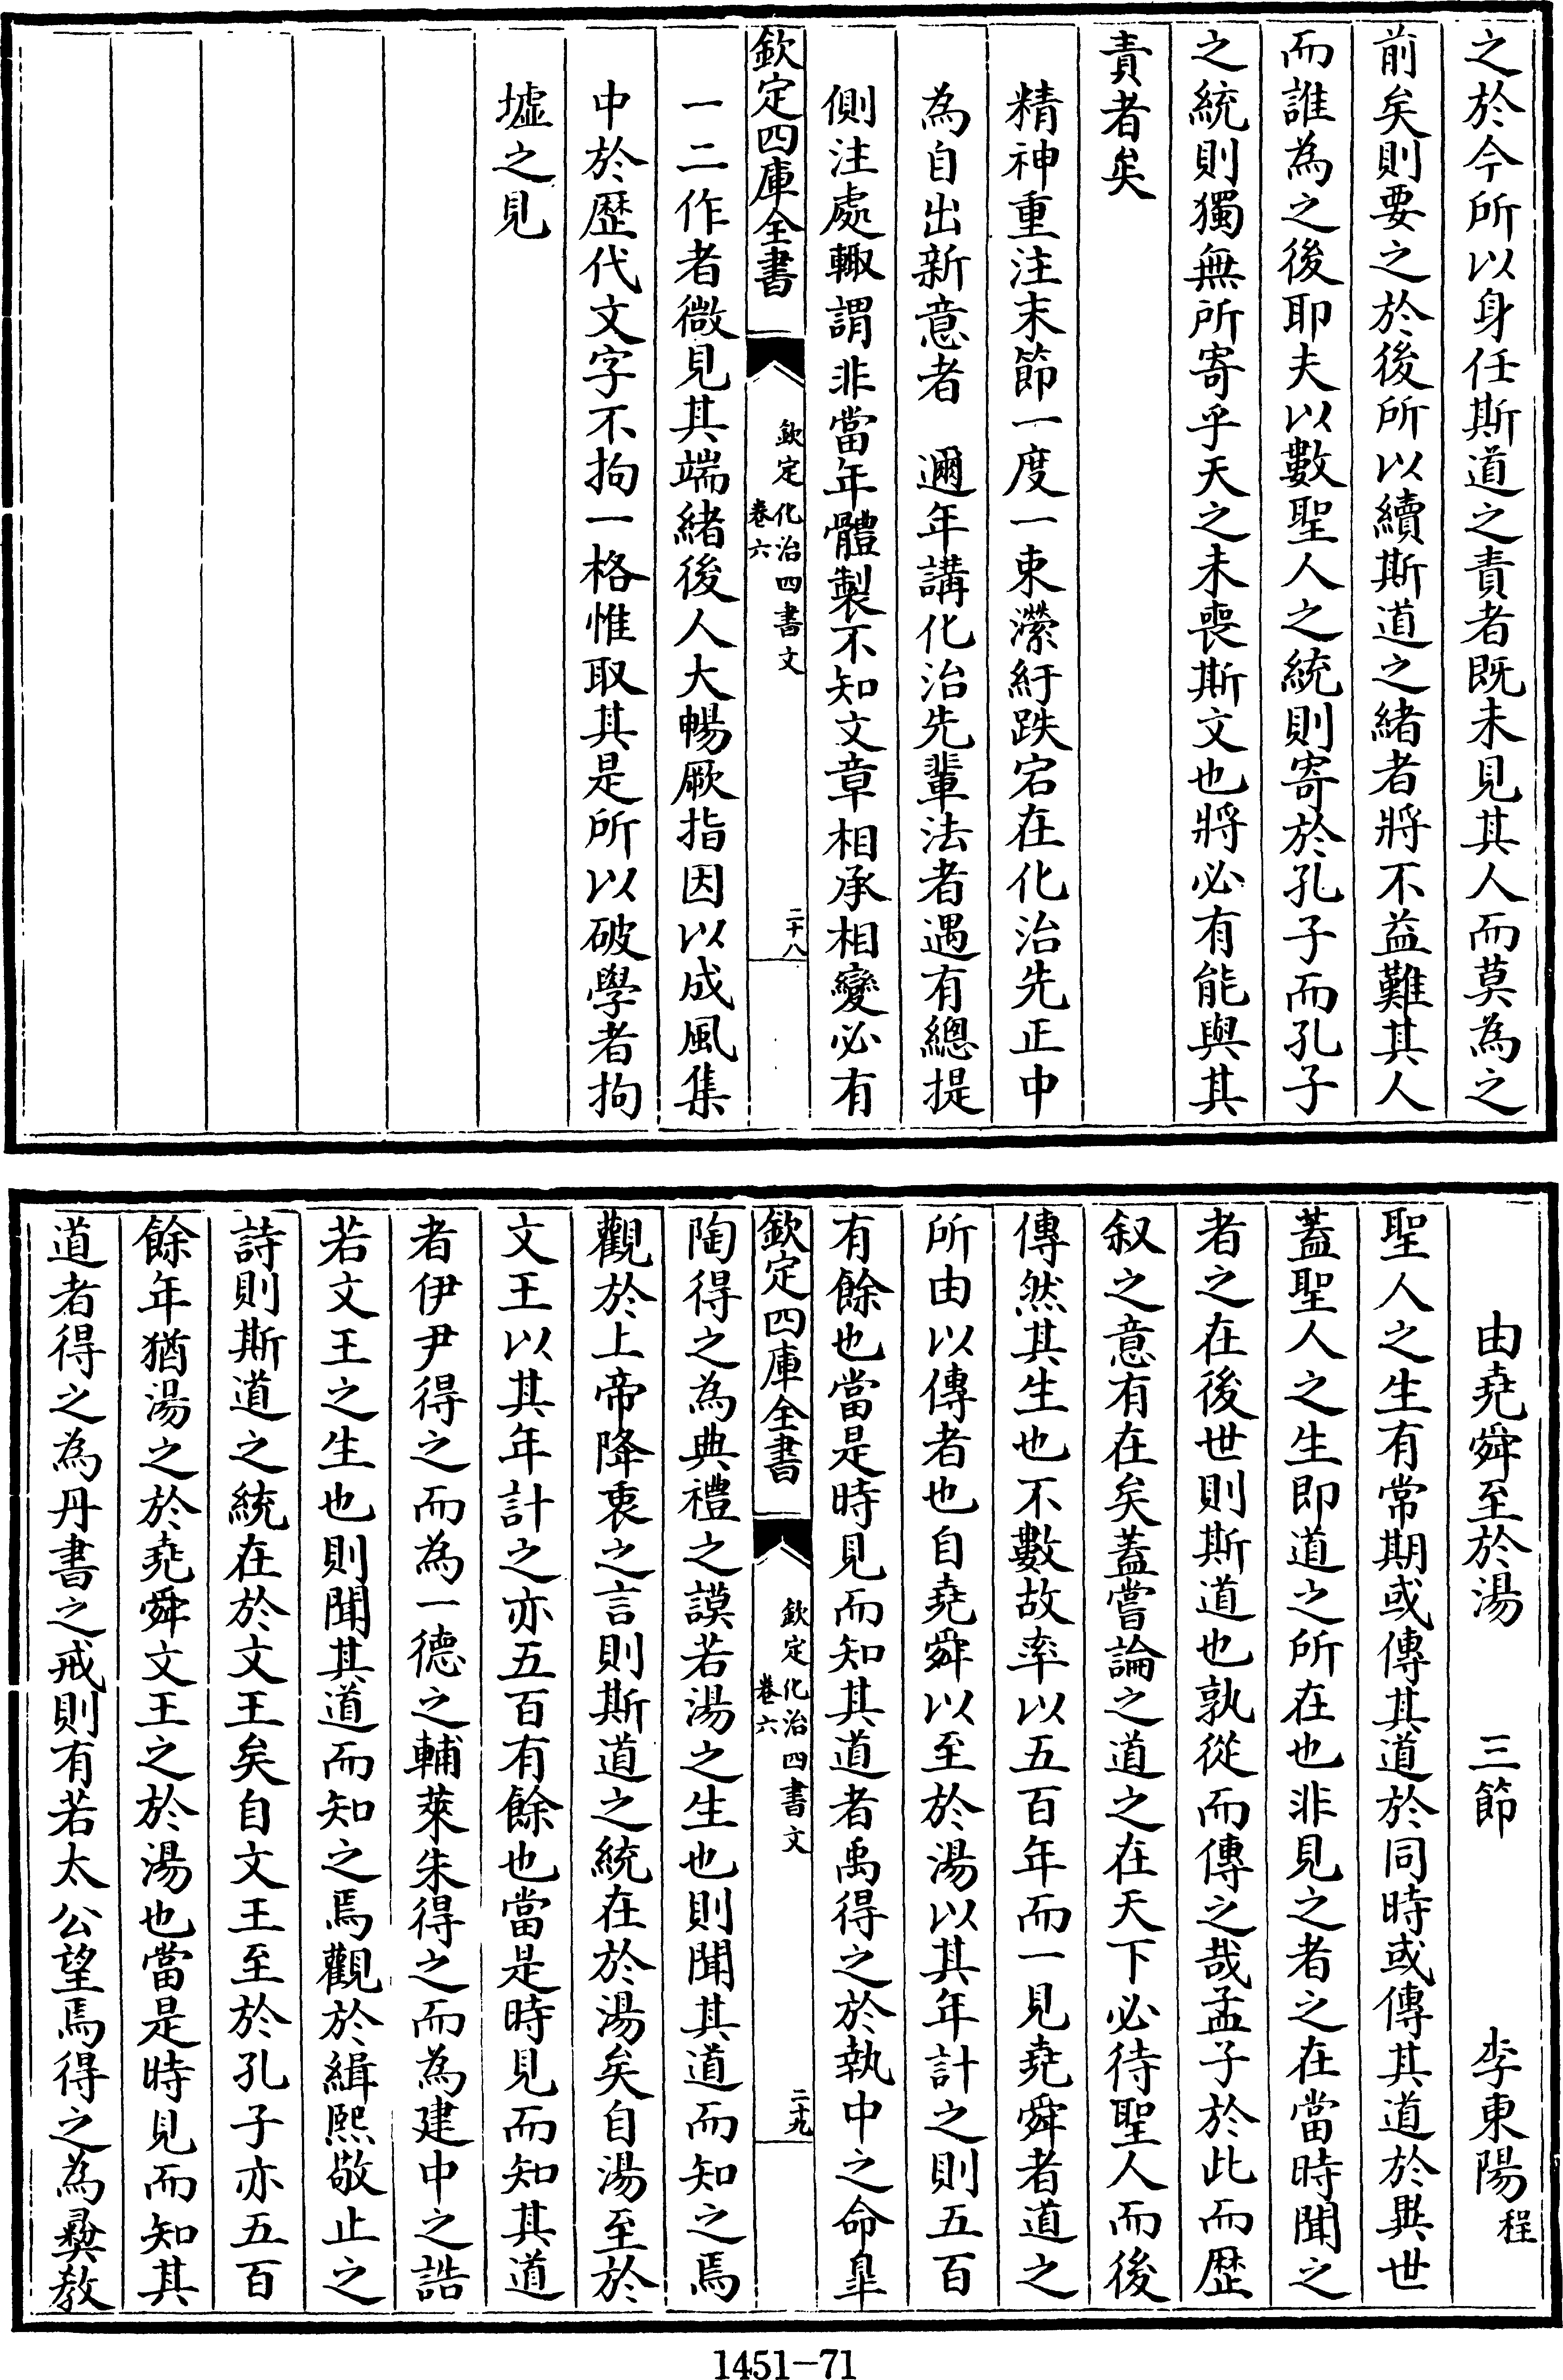 之於今所以身任斯道之責者既未見其人而莫為之
前矣則要之於後所以續斯道之緒者將不益難其人
而誰為之後耶夫以數聖人之統則寄於孔子而孔子
之統則獨無所寄乎天之未喪斯文也將必有能與其
責者矣
精神重注末節一度一束瀠紆跌宕在化治先正中
為自出新意者　邇年講化治先輩法者遇有總提
側注處輙謂非當年體製不知文章相承相變必有
欽定四庫全書
欽定化治四書文
卷六
二十八
一二作者微見其端緒後人大暢厥指因以成風集
中於歷代文字不拘一格惟取其是所以破學者拘
墟之見
由堯舜至於湯　三節　李東陽程
聖人之生有常期或傳其道於同時或傳其道於異世
蓋聖人之生即道之所在也非見之者之在當時聞之
者之在後世則斯道也孰從而傳之哉孟子於此而歷
叙之意有在矣蓋嘗論之道之在天下必待聖人而後
傳然其生也不數故率以五百年而一見堯舜者道之
所由以傳者也自堯舜以至於湯以其年計之則五百
有餘也當是時見而知其道者禹得之於執中之命臯
欽定四庫全書
欽定化治四書文
卷六
二十九
陶得之為典禮之謨若湯之生也則聞其道而知之焉
觀於上帝降衷之言則斯道之統在於湯矣自湯至於
文王以其年計之亦五百有餘也當是時見而知其道
者伊尹得之而為一德之輔萊朱得之而為建中之誥
若文王之生也則聞其道而知之焉觀於緝熙敬止之
詩則斯道之統在於文王矣自文王至於孔子亦五百
餘年猶湯之於堯舜文王之於湯也當是時見而知其
道者得之為丹書之戒則有若太公望焉得之為彝教
1451-71